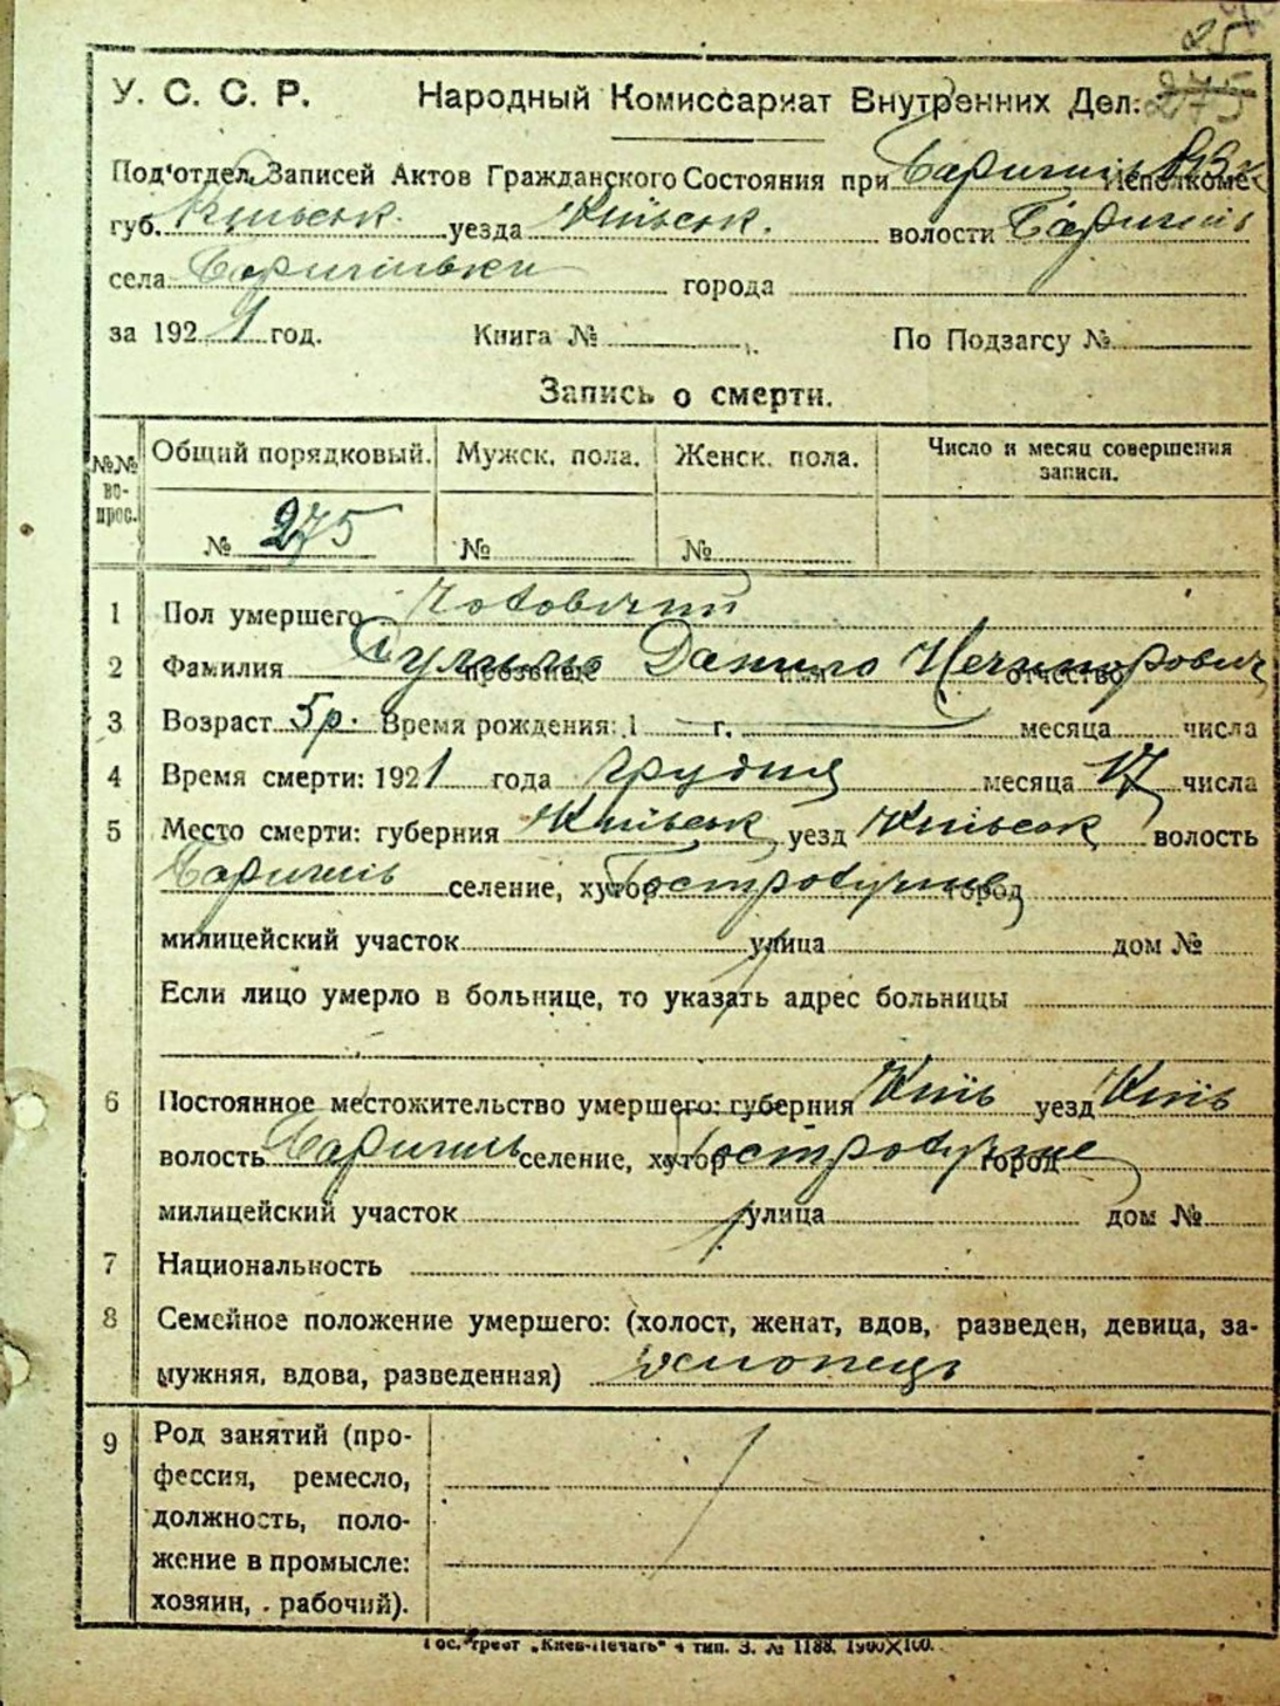 У. С. С. Р. Народный Комиссариат Внутренних Дел.
Под'отдел Записей Актов Гражданского Состояния при Исполкоме
губ. Київськ. уезда Київськ. волости
села город
за 1921 год. Книга № По Подзагсу №
Запись о смерти.
№№ вопрос. Общий порядковый. Мужск. пола. Женск. пола. Число и месяц совершения записи.
№ 275 № №
1 Пол умершего Чоловічий
2 Фамилия прозвище Данило имя Нечипорович отчество
3 Возраст 5 р. Время рождения: 1 г. месяца числа
4 Время смерти: 1921 года грудня месяца 17 числа
5 Место смерти: губерния Київськ уезд Київськ волость
селение, хутор город
милицейский участок улица дом №
Если лицо умерло в больнице, то указать адрес больницы
6 Постоянное местожительство умершего: губерния Київ уезд Київ
волость селение, хутор город
милицейский участок улица дом №
7 Национальность
8 Семейное положение умершего: (холост, женат, вдов, разведен, девица, за-
мужняя, вдова, разведенная) хлопець
9 Род занятий (про-
фессия, ремесло,
должность, поло-
жение в промысле:
хозяин, рабочий).
Гос. трест „Киев-Печать“ 4 тип. З. № 1188. 1900Х100.